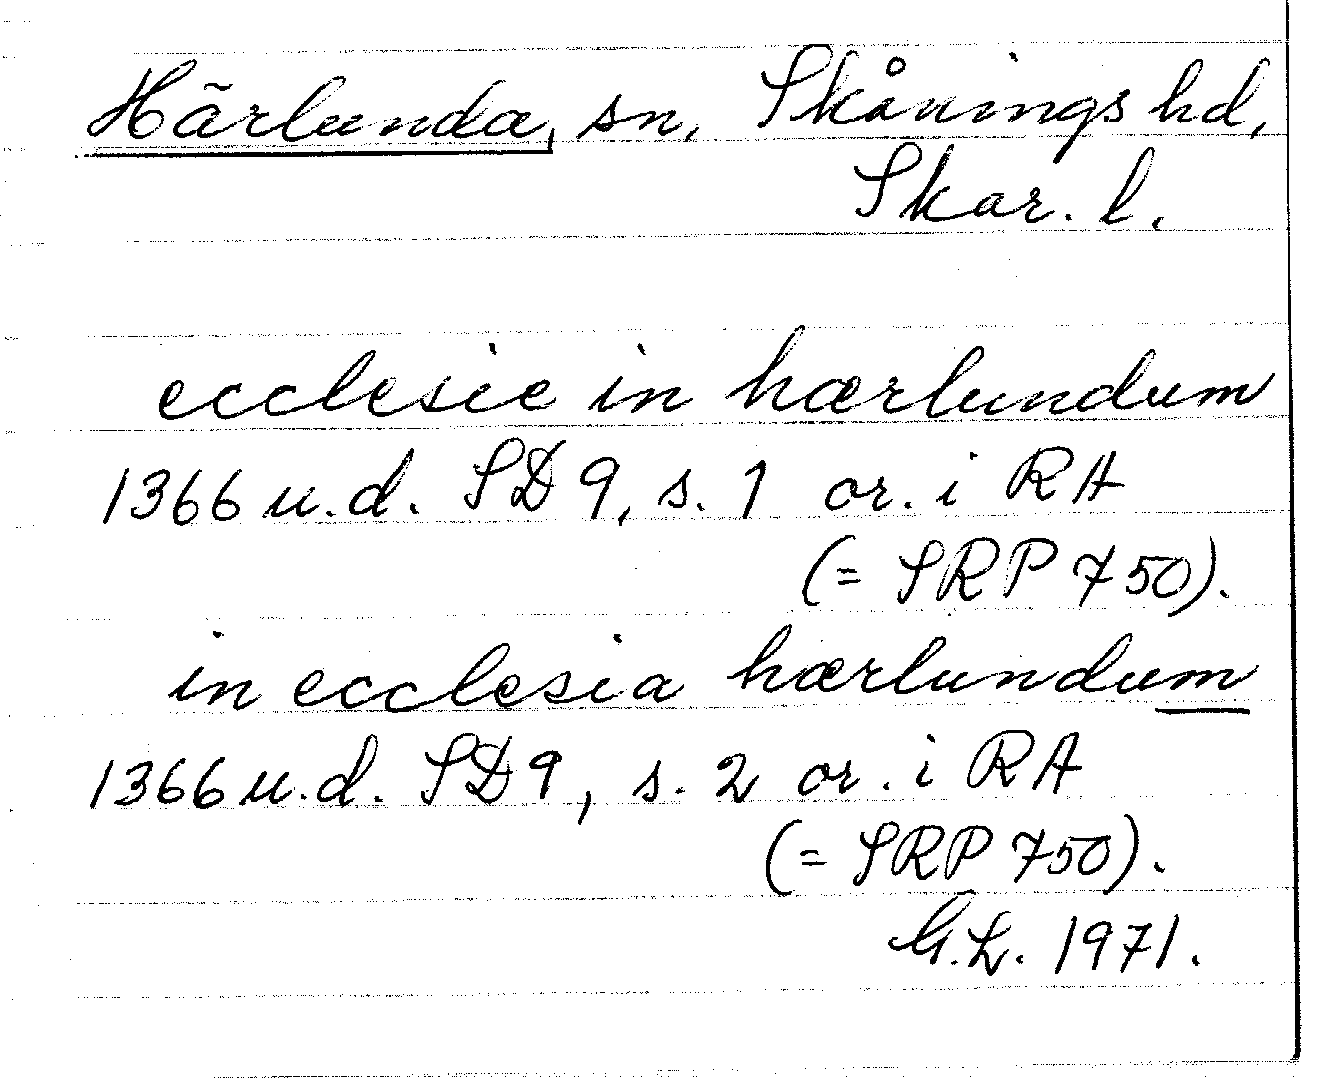 Härlunda, sn, Skånings hd,
Skar. l.
ecclesie in hærlundum
1366 u.d. SD 9, s. 1 or. i RA
(= SRP 750).
in ecclesia hærlundum
1366 u.d. SD 9, s. 2 or. i RA
(= SRP 750).
G.L. 1971.